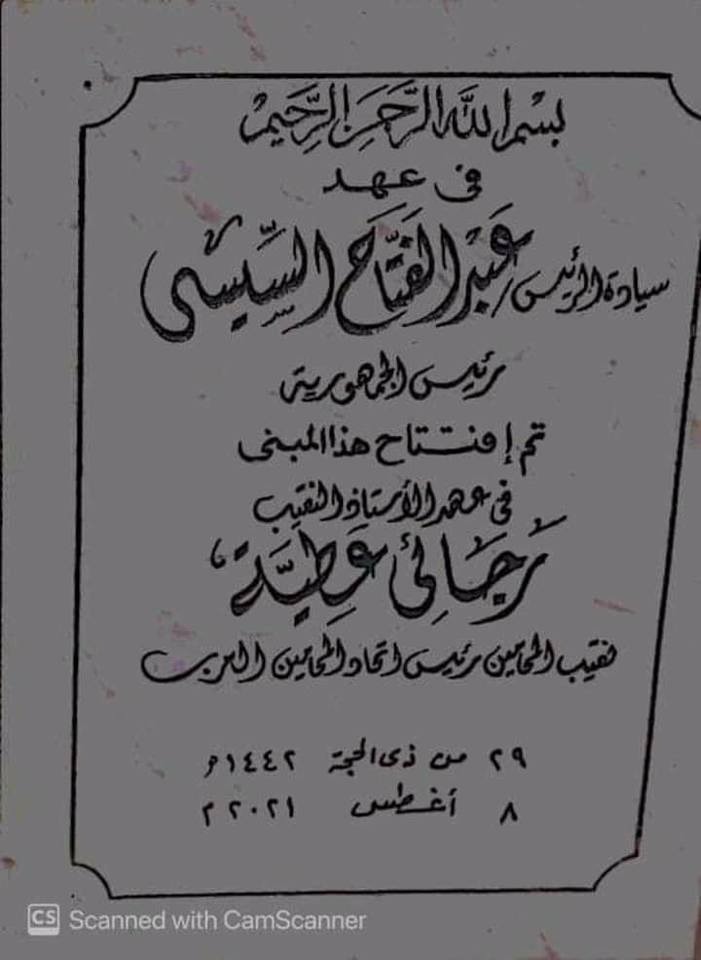 بسم الله الرحمن الرحيم
فى عهد
سيادة الرئيس عبد الفتاح السيسى
رئيس الجمهورية
تم إفتتاح هذا المبنى
فى عهد الأستاذ النقيب
رجائى عطية
نقيب المحامين رئيس اتحاد المحامين العرب
٢٩ من ذى الحجة ١٤٤٢هـ
٨ أغسطس ٢٠٢١م
CS Scanned with CamScanner